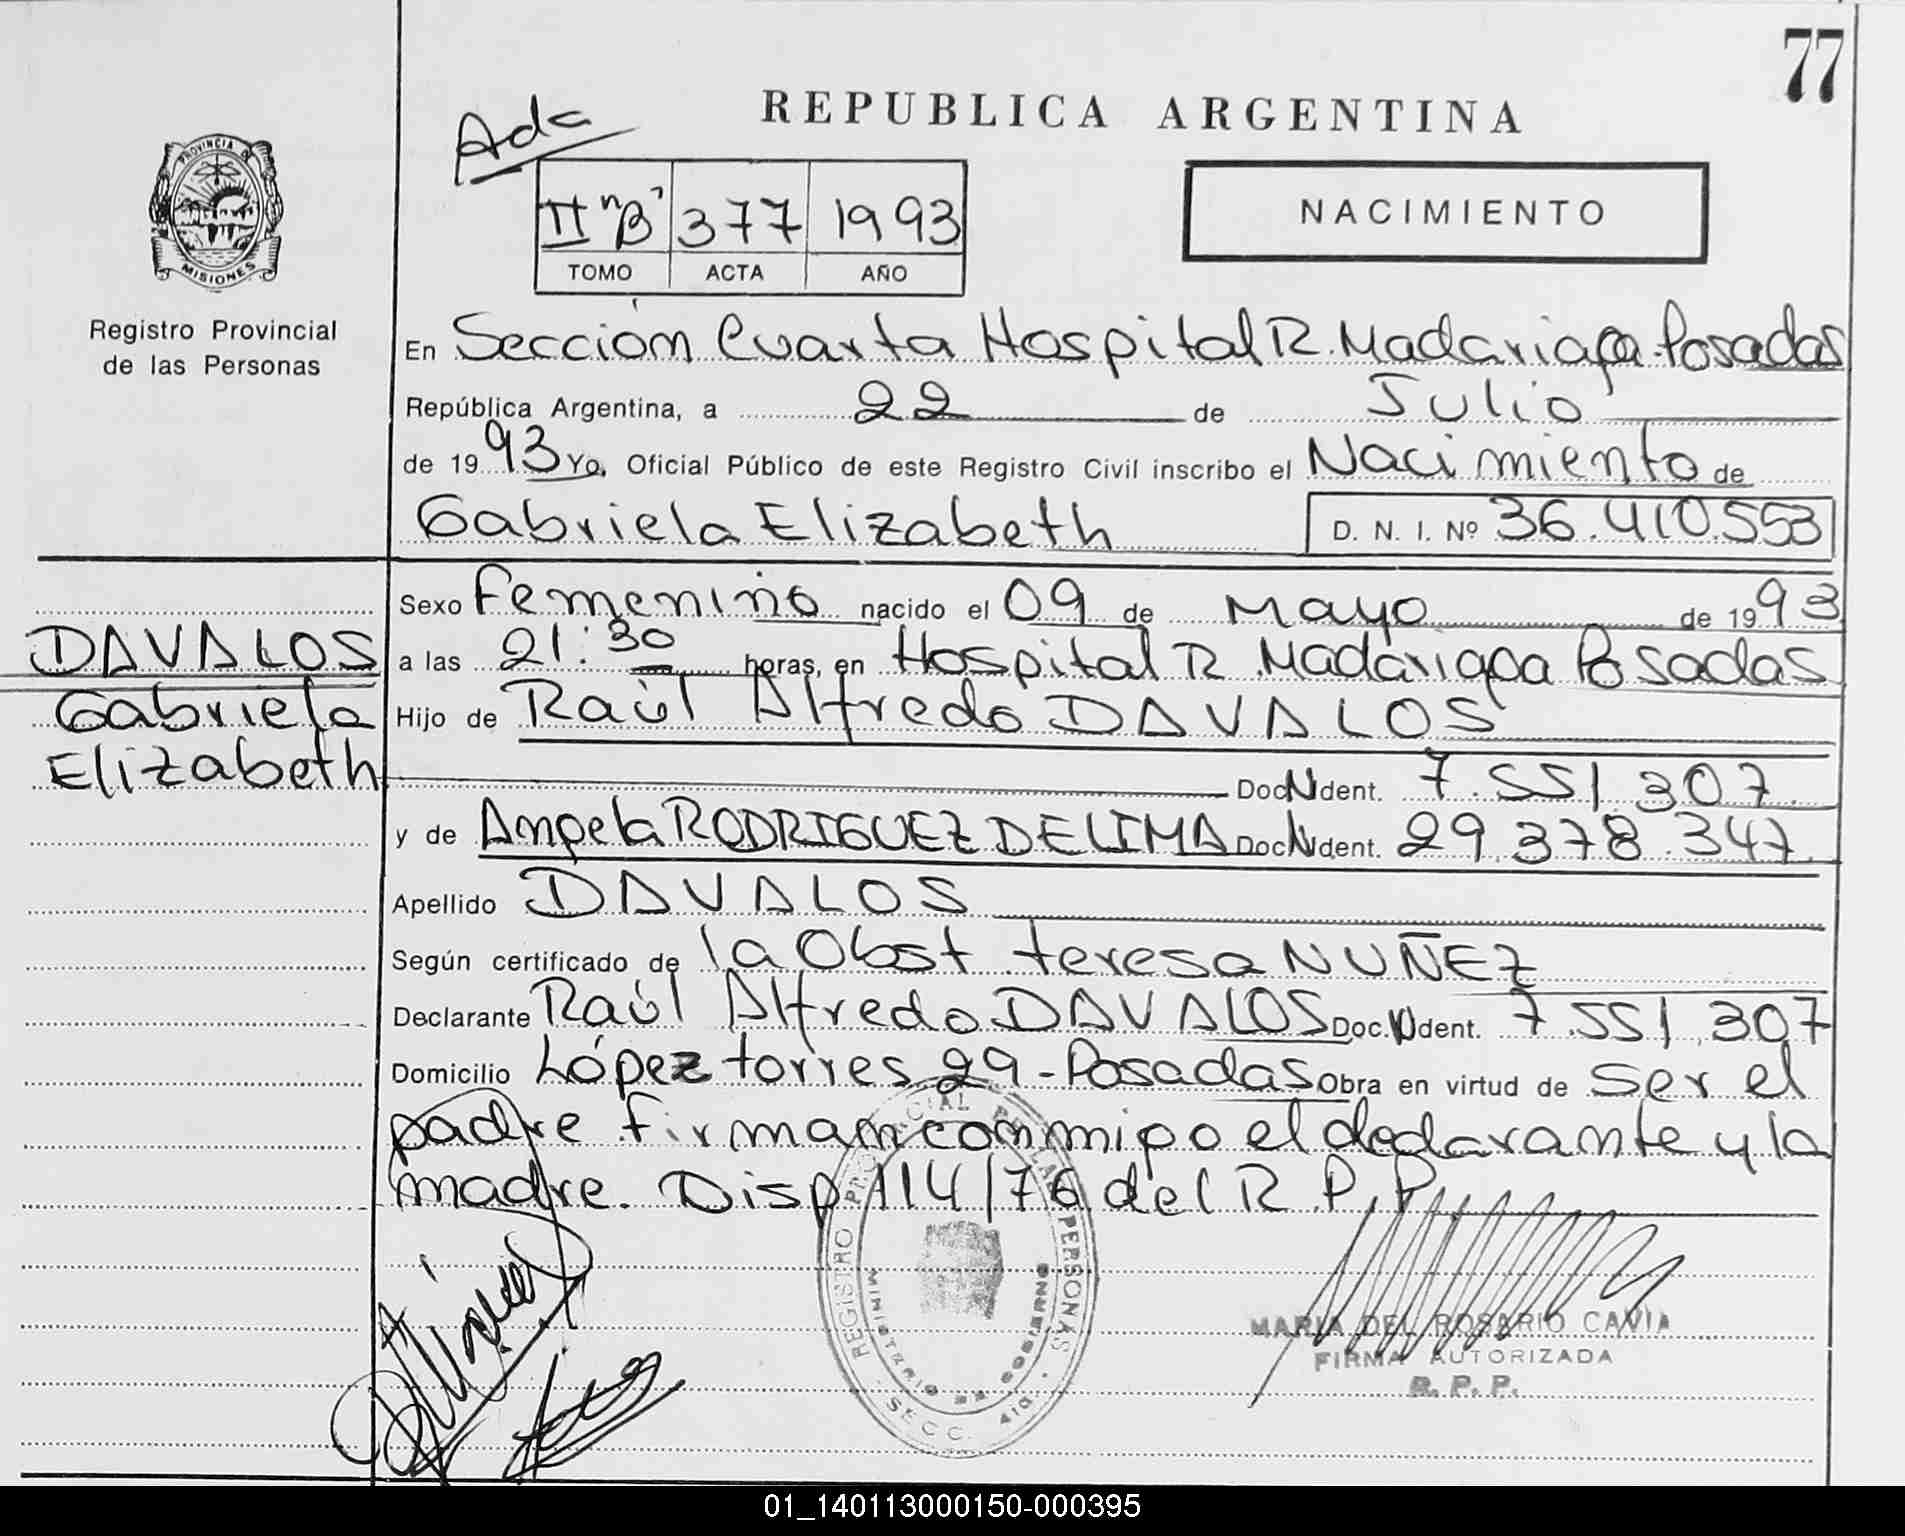 77
Ada
REPUBLICA ARGENTINA
PROVINCIA DE
MISIONES
Registro Provincial
de las Personas
II "B" 377 1993
TOMO ACTA AÑO
NACIMIENTO
En Sección Cuarta Hospital R. Madariaga-Posadas
República Argentina, a 22 de Julio
de 1993 Yo, Oficial Público de este Registro Civil inscribo el Nacimiento de
Gabriela Elizabeth D. N. I. Nº 36.410.553
Sexo Femenino nacido el 09 de Mayo de 1993
DAVALOS
Gabriela
Elizabeth
a las 21:30 horas, en Hospital R. Madariaga Posadas
Hijo de Raúl Alfredo DAVALOS
Doc N Ident. 7.551.307
y de Angela RODRIGUEZ DE LIMA Doc N Ident. 29.378.347
Apellido DAVALOS
Según certificado de la Obst teresa NUÑEZ
Declarante Raúl Alfredo DAVALOS Doc. N Ident. 7.551.307
Domicilio López torres 29-Posadas Obra en virtud de Ser el
padre firman conmigo el declarante y la
madre. Disp 114/76 del R.P.P.
REGISTRO PROVINCIAL DE LAS PERSONAS
MINISTERIO DE GOBIERNO
SECC. 4ta.
MARIA DEL ROSARIO CAVIA
FIRMA AUTORIZADA
R. P. P.
01_140113000150-000395